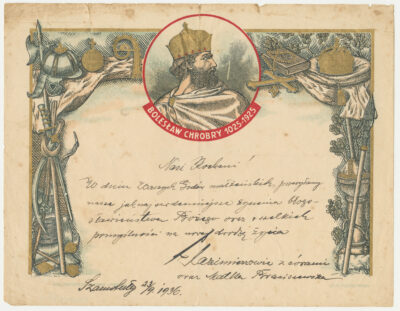 BOLESŁAW CHROBRY 1025-1925
Nasi Kochani!
W dniu Waszych Godów małżeńskich, przesyłamy
nasze jak najserdeczniejsze życzenia błogo-
sławieństwa Bożego oraz wszelkich
pomyślności na nowej drodze życia
Kazimierowie z córkami
oraz Matka Franciszka
Szamotuły 1936.